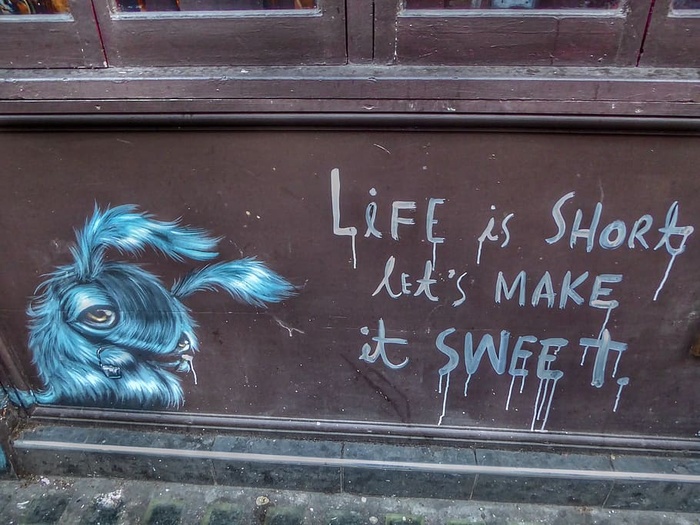 LiFE is SHORt
let's MAKE
it SWEEt